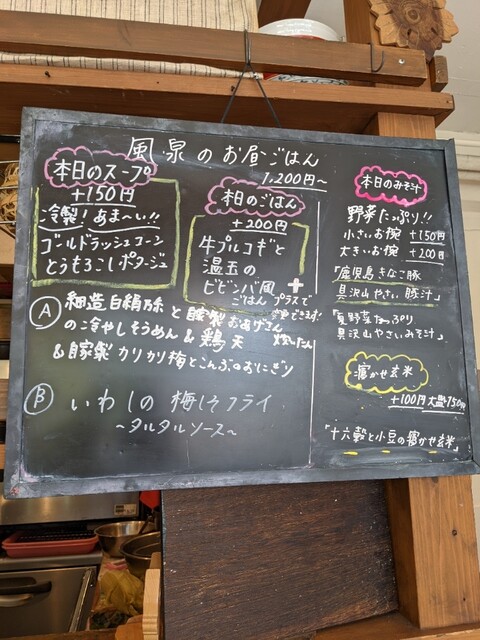 風泉のお昼ごはん
1,200円〜
本日のスープ
+150円
冷製!あま〜い!!
ゴールドラッシュコーン
とうもろこしポタージュ
本日のごはん
+200円
牛プルコギと
温玉の
ビビンバ風
ごはん
+
プラスで
変更できます!
Ⓐ 細造り自絹糸
と自家製おあげさん
の冷やしそうめん & 鶏天
炊いたん
& 自家製カリカリ梅とこんぶのおにぎり
Ⓑ いわしの梅しそフライ
〜タルタルソース〜
本日のみそ汁
野菜たっぷり!!
小さいお椀 +150円
大きいお椀 +200円
「鹿児島きなこ豚
具沢山やさい豚汁」
「夏野菜たっぷり
具沢山やさいみそ汁」
寝かせ玄米
+100円 大盛+150円
「十六穀と小豆の寝かせ玄米」